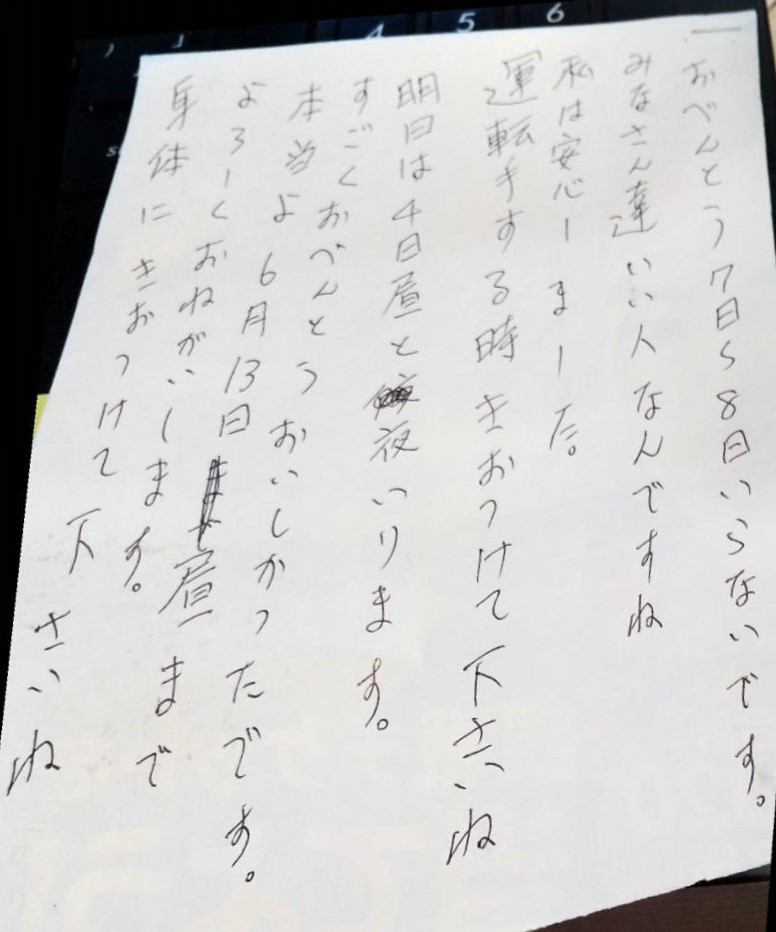 4 5 6
おべんとう7日〜8日いらないです。
みなさん達いい人なんですね
私は安心しました。
運転手する時きおつけて下さいね
明日は4日昼と夜いります。
すごくおべんとうおいしかったです。
本当よ6月13日昼まで
よろしくおねがいします。
身体にきおつけて下さいね